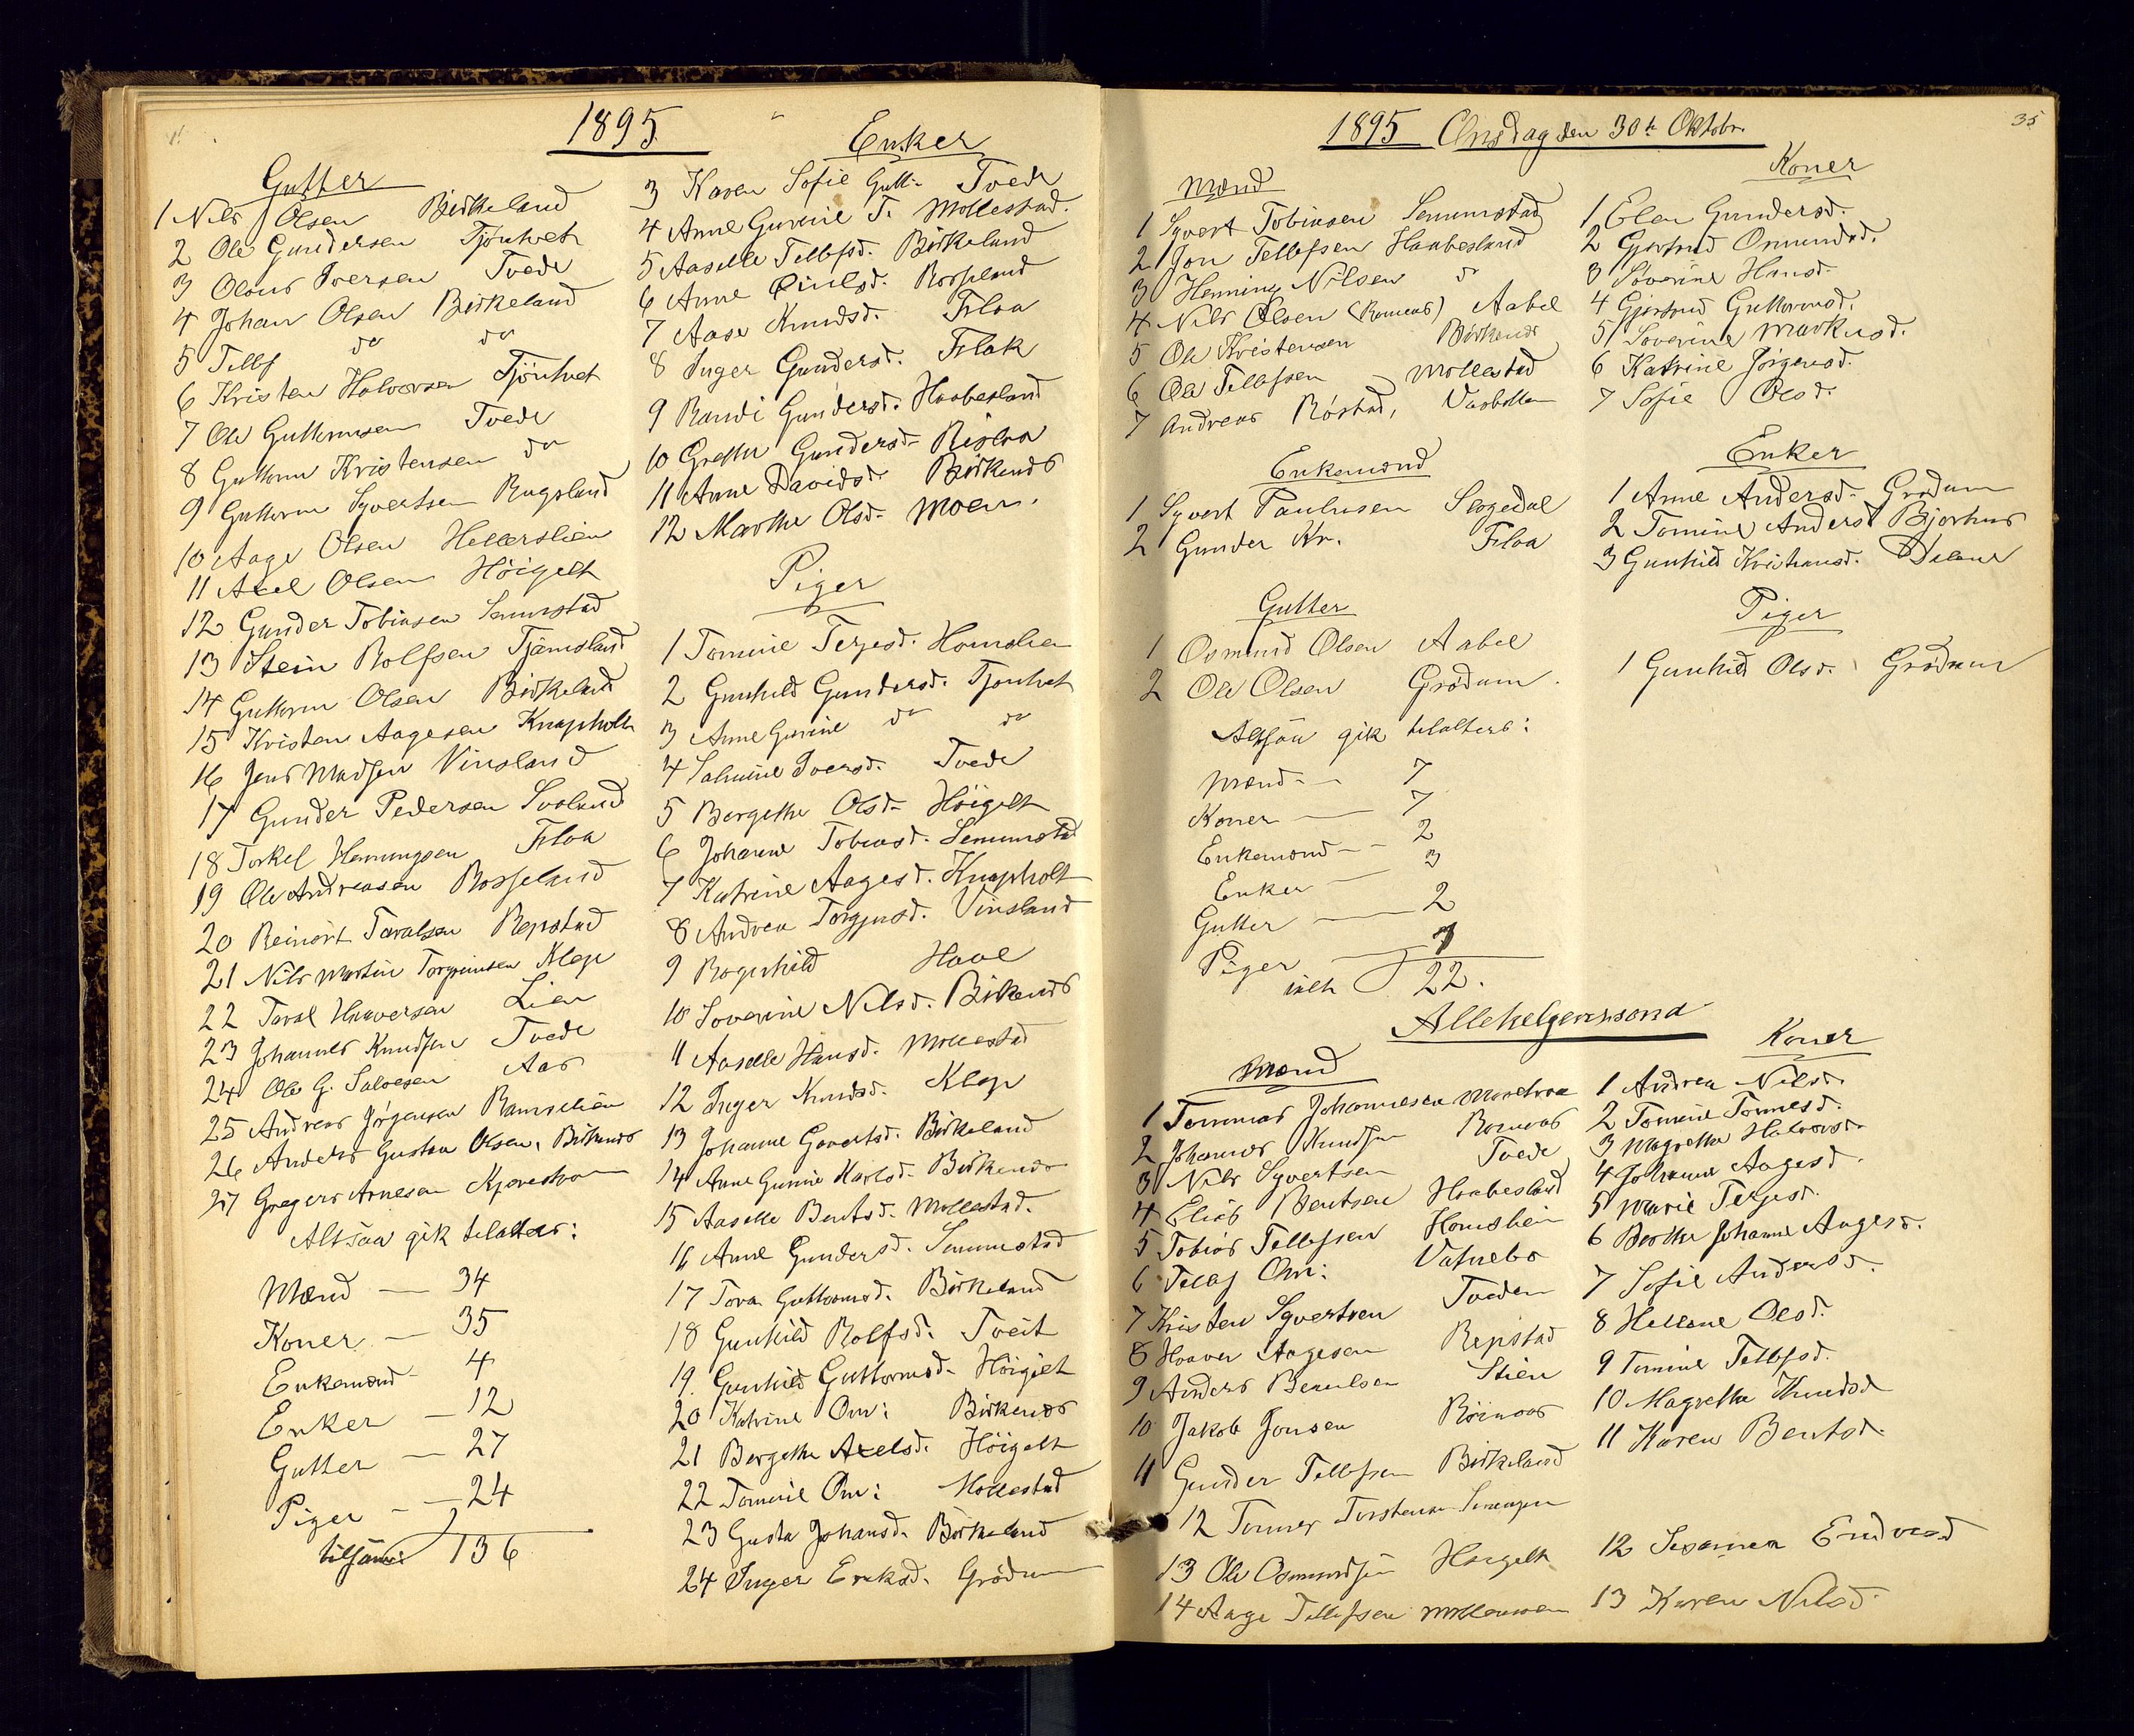 1895
Gutter
1 Nils Olsen Birkeland
2 Ole Gundersen Tjönhvet
3 Olaus Iversen Tvede
4 Johan Olsen Birkeland
5 Tellef do do
6 Kristen Halvorsen Tjönhvet
7 Ole Guttormsen Tvede
8 Guttorm Kristensen do
9 Guttorm Syvertsen Rugsland
10 Aage Olsen Hellerslien
11 Axel Olsen Höigelt
12 Gunder Tobiasen Senumstad
13 Stein Rolfsen Tjämsland
14 Guttorm Olsen Birkeland
15 Kristen Aagesen Knapholt
16 Jens Madsen Vinsland
17 Gunder Pedersen Svaland
18 Torkel Henningsen Flaa
19 Ole Andreasen Rosseland
20 Reinert Taralsen Repstad
21 Nils Martin Torgrimsen Klep
22 Taral Haaversen Lien
23 Johannes Knudsen Tvede
24 Ole G. Salvesen Aas
25 Andreas Jörgensen Ramselien
26 Anders Gustav Olsen, Birkenes
27 Gregers Arnesen
Altsaa gik tilalters:
Mænd — 34
Koner — 35
Enkemænd - 4
Enker — 12
Gutter — 27
Piger — 24
tilsam: 136
Enker
3 Karen Sofie Gutt: Tvede
4 Anne Gurine T. Mollestad.
5 Aaselle Tellefsd. Birkeland
6 Anne Eivilsd. Rosseland
7 Aase Knudsd. Flaa
8 Inger Gundersd. Flak
9 Randi Gundersd. Haabesland
10 Grethe Gundersd. Risläa
11 Anne Davidsd. Birkenes
12 Marthe Olsd. Moen.
Piger
1 Tomine Terjesd. Homslien
2 Gunhild Gundersd. Tjonhvet
3 Anne Gurine do do
4 Salmine Iversd. Tvede
5 Bergethe Olsd. Höigelt
6 Johanne Tobiasd. Senumstad
7 Katrine Aagesd. Knapholt
8 Andrea Torgjusd. Vinsland
9 Rognhild Have
10 Soverine Nilsd. Birkenes
11 Aaselle Hansd. Mollestad
12 Inger Knudsd. Klep
13 Johanne Govertsd. Birkeland
14 Anne Gunine Karlsd. Birkenes
15 Aaselle Bentsd. Mollestad.
16 Anne Gundersd. Senumstad
17 Tora Guttormsd. Birkeland
18 Gunhild Rolfsd. Tveit
19 Gunhild Guttormsd. Höigelt
20 Katrine Om: Birkenes
21 Bergethe Axelsd. Höigelt
22 Tomine Om: Mollestad
23 Gusta Johansd. Birkeland
24 Inger Eriksd. Grödum
35
1895 Onsdag den 30te Oktobr.
Mænd
1 Syvert Tobiasen Senumstad
2 Jon Tellefsen Haabesland
3 Henning Nilsen do
4 Nils Olsen (Rameas) Aabel
5 Ole Kristensen Birkenes
6 Ole Tellefsen Mollestad
7 Andreas Röstad, Vasbotten
Koner
1 Elen Gundersd.
2 Gjertrud Osmundsd.
3 Soverine Hansd.
4 Gjertrud Guttormsd.
5 Soverine Markusd.
6 Katrine Jörgensd.
7 Sofie Olsd.
Enkemænd
1 Syvert Paulusen Søgedal
2 Gunder Kr. Flaa
Enker
1 Anne Andersd. Grödum
2 Tomine Andersd Bjorhus
3 Gunhild Kristiansd.
Gutter
1 Osmund Olsen Aabel
2 Ole Olsen Grödum.
Piger
1 Gunhild Olsd. Grödum
Altsaa gik tilalters:
Mænd — 7
Koner — 7
Enkemænd — 2
Enker — 3
Gutter — 2
Piger 1
ialt 22.
Allehelgenssond
Mænd
1 Tommas Johannesen
2 Johannes Knudsen
3 Nils Syvertsen Tvede
4 Elias Bentsen Haabesland
5 Tobias Tellefsen Homslien
6 Tellef Om: Vatnebo
7 Kristen Syvertsen Tveden
8 Haaver Aagesen Repstad
9 Anders Berulsen Stien
10 Jakob Jonsen
11 Gunder Tellefsen Birkeland
12 Tonnes Torstensen
13 Ole Osmundsen Hoigelt
14 Aage Tellefsen
Koner
1 Andrea Nilsd.
2 Tomine Tonnesd.
3 Magrethe Halvorsd.
4 Johanne Aagesd.
5 Marie Terjesd.
6 Berthe Johanne Aagesd.
7 Sofie Andersd.
8 Hellene Olsd.
9 Tomine Tellefsd.
10 Magrethe Knudsd
11 Karen Bentsd.
12 Susanna Endresd
13 Karen Nilsd.